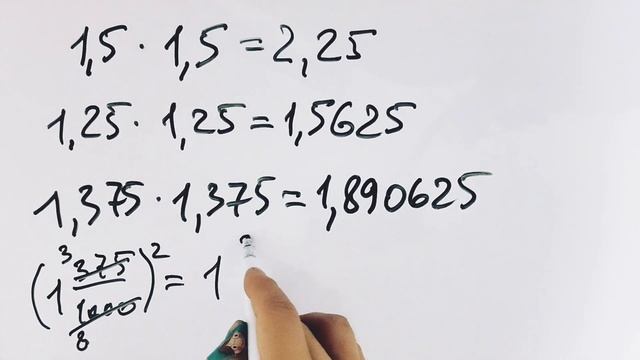 1,5 · 1,5 = 2,25
1,25 · 1,25 = 1,5625
1,375 · 1,375 = 1,890625
(1 3 375/1000 8)² = 1